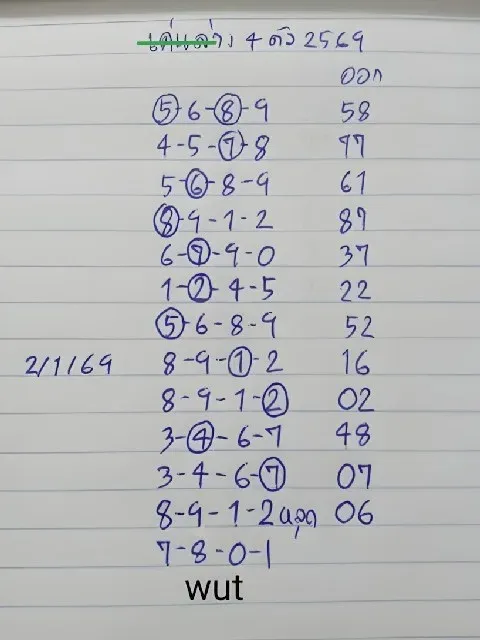 เด่นล่าง 4 ตัว 2569
ออก
5-6-8-9 58
4-5-7-8 77
5-6-8-9 61
8-9-1-2 87
6-7-9-0 37
1-2-4-5 22
5-6-8-9 52
2/1/69 8-9-1-2 16
8-9-1-2 02
3-4-6-7 48
3-4-6-7 07
8-9-1-2 หลุด 06
7-8-0-1
wut